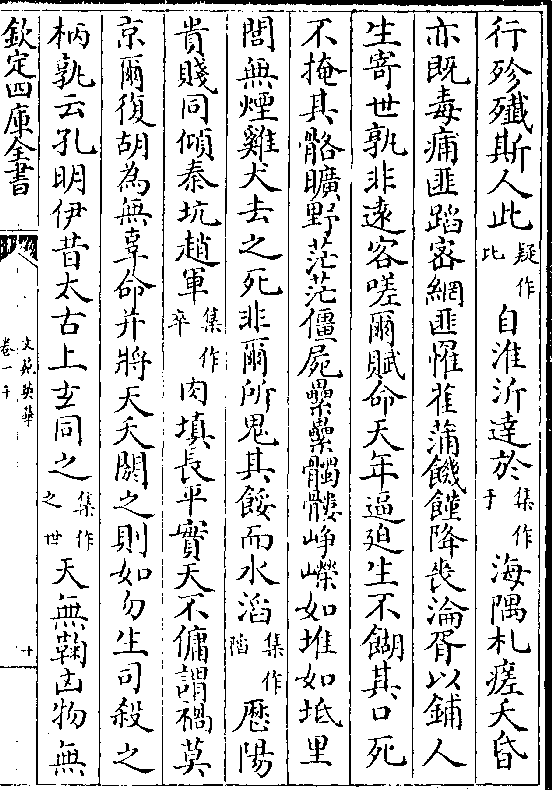 行殄殲斯人此疑作比自淮沂達於集作于海隅札瘥夭昏
亦既毒痛匪蹈密網匪懼萑蒲饑饉降喪淪胥以鋪人
生寄世孰非遠客嗟爾賦命天年逼迫生不餬其口死
不掩其骼曠野茫茫僵屍纍纍髑髏崢嶸如堆如坻里
閭無煙雞犬去之死非爾所鬼其餒而水滔集作陷歷陽
貴賤同傾秦坑趙軍集作卒肉填長平實天不傭謂禍莫
京爾復胡為無辜命并將天夭閼之則如勿生司殺之
柄孰云孔明伊昔太古上玄同之集作之世天無鞠凶物無
欽定四庫全書
文苑英華
卷一千
十